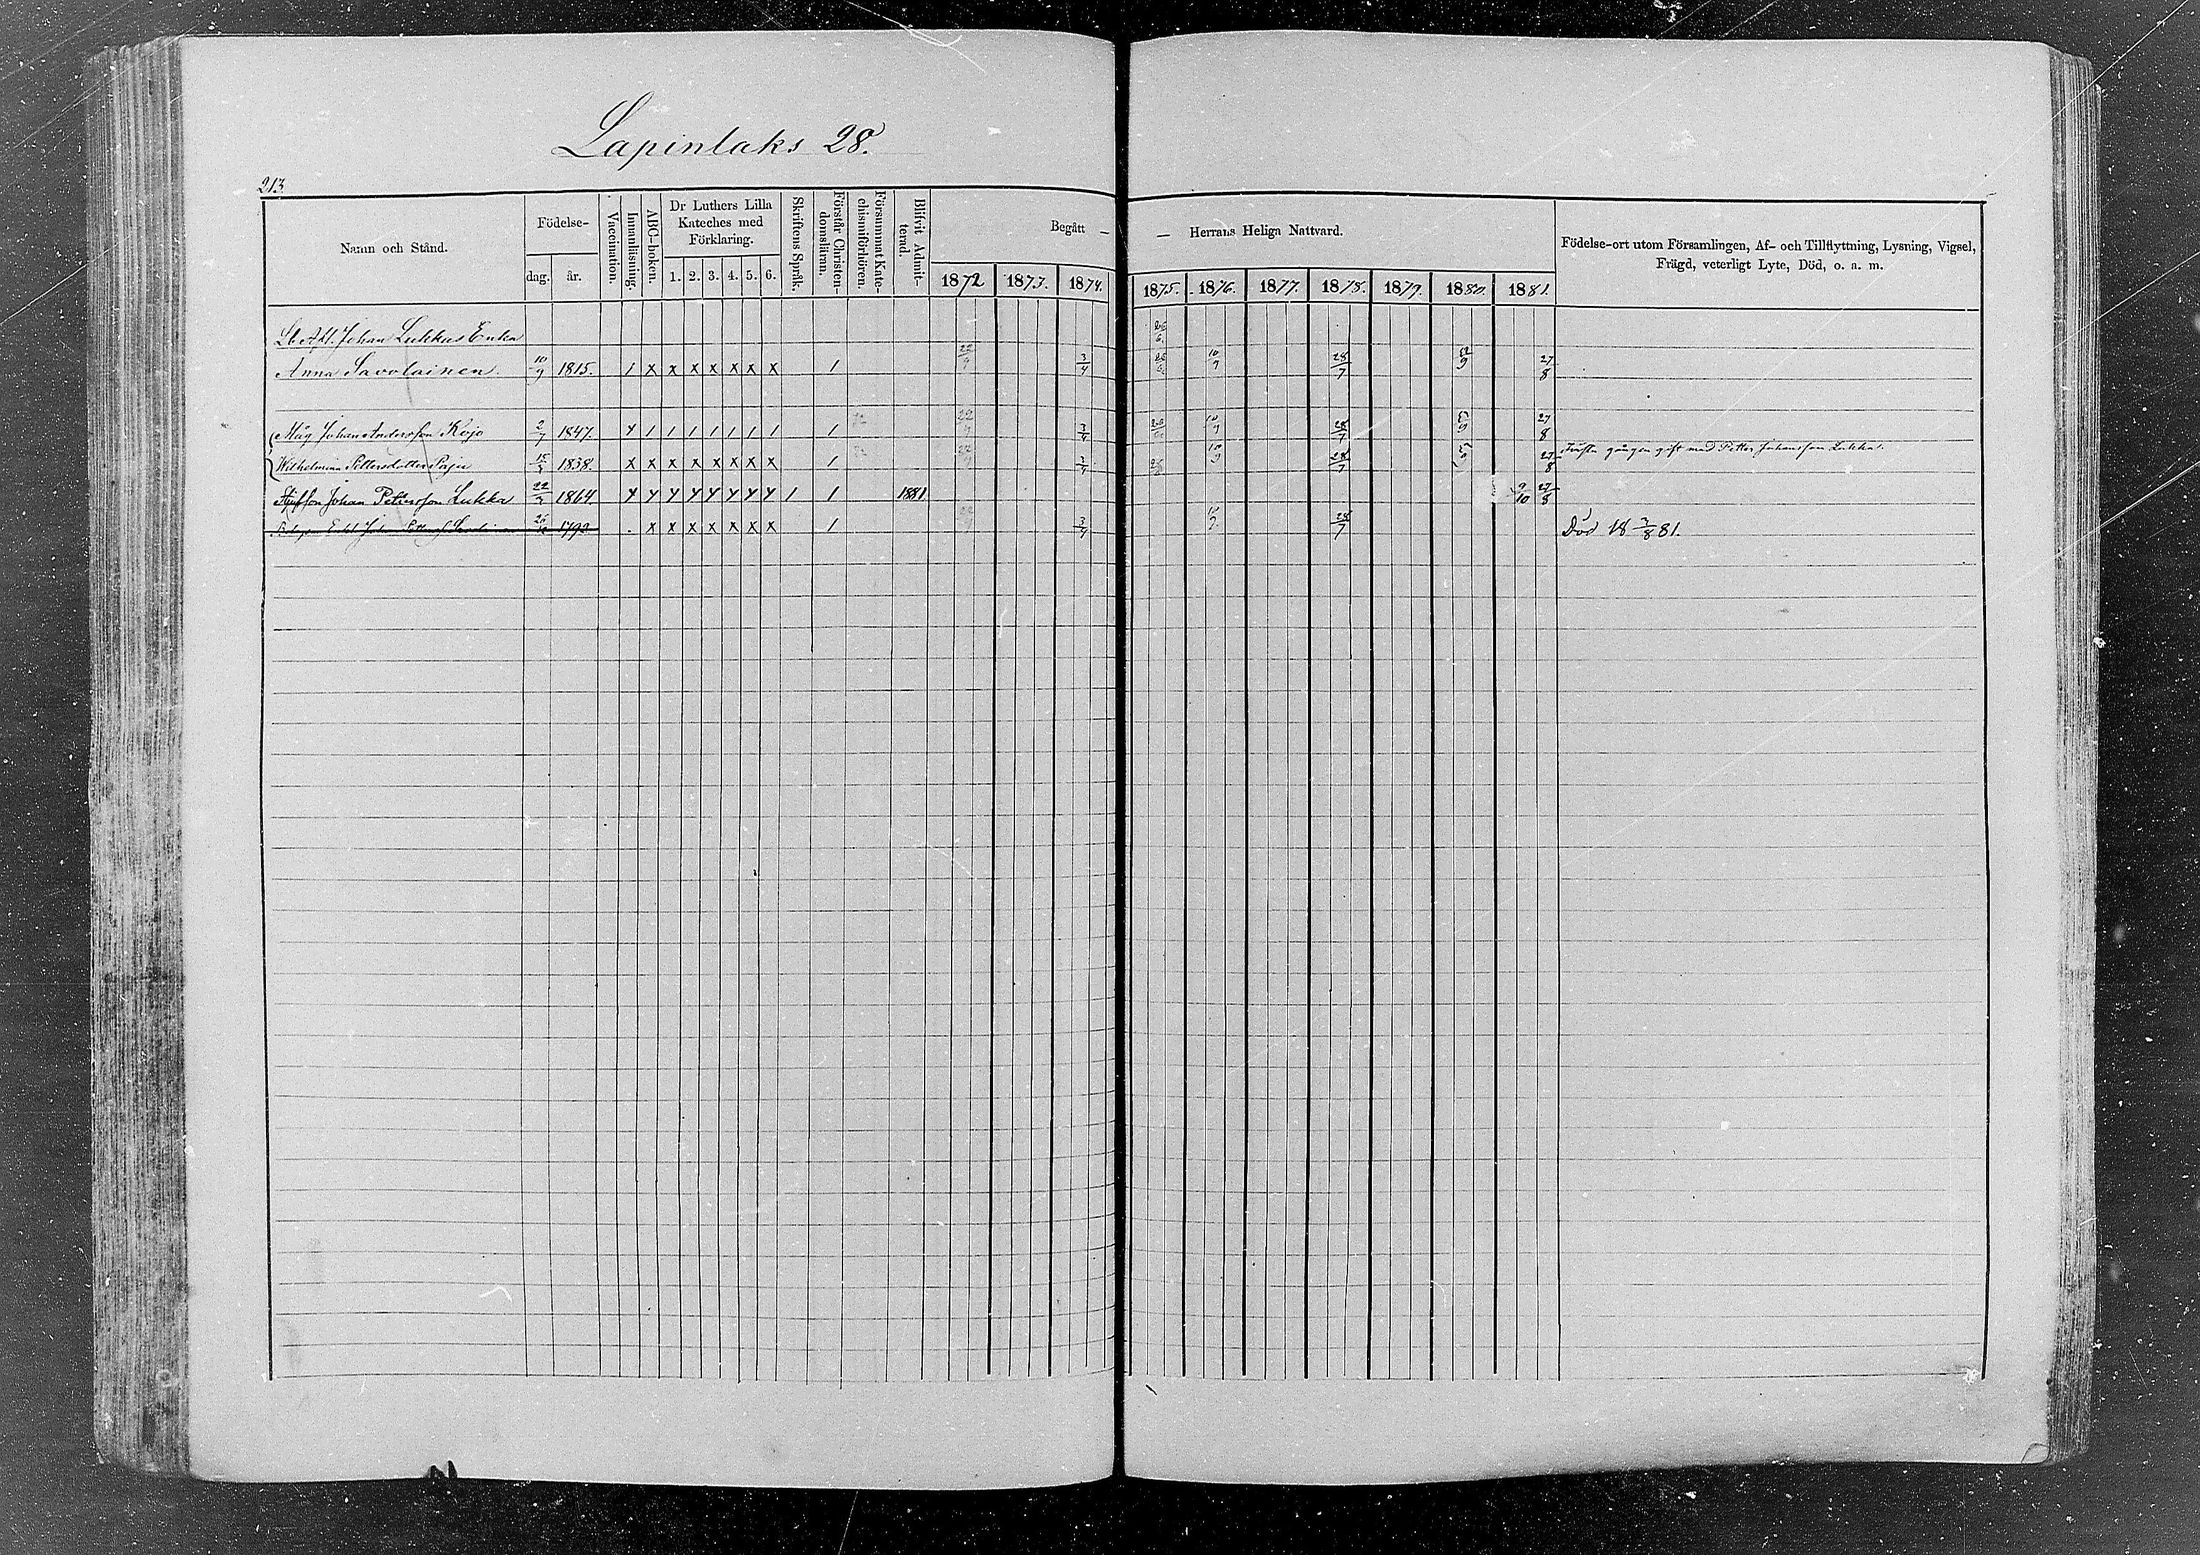 Lapinlaks 28.
213
Namn och Stånd.
Födelse-
dag. år.
Vaccination.
Innanläsning.
ABC-boken.
Dr Luthers Lilla
Kateches med
Förklaring.
1. 2. 3. 4. 5. 6.
Skriftens Språk.
Förstår Christen-
domsläran.
Försummat Kate-
chismiförhören.
Blifvit Admit-
terad.
Begått —
— Herrans Heliga Nattvard.
1872 1873. 1874. 1875. 1876. 1877. 1878. 1879. 1880. 1881.
Födelse-ort utom Församlingen, Af- och Tillflyttning, Lysning, Vigsel,
Frägd, veterligt Lyte, Död, o. a. m.
Johan Lukkas Enka
26/6.
Anna Savolainen 10/9 1815. 1 x x x x x x x 1 22/9 3/4 26/6. 10/9 28/7 27/8
Måg Johan Andersson Kojo 2/7 1847. y 1 1 1 1 1 1 1 1 22/9 3/4 10/9 28/7 27/8
Wilhelmina Pettersdotter 15/3 1838. x x x x x x x x 1 22/9 3/4 10/9 28/7 27/8 gången gift med Petter Johansson Lukka.
Styfson Johan Pettersson Lukka 22/3 1864. y y y y y y y y 1 1 1881 9/10 27/8
1792 x x x x x x x 1 22/9 3/4 28/7 Död 18 3/8 81.